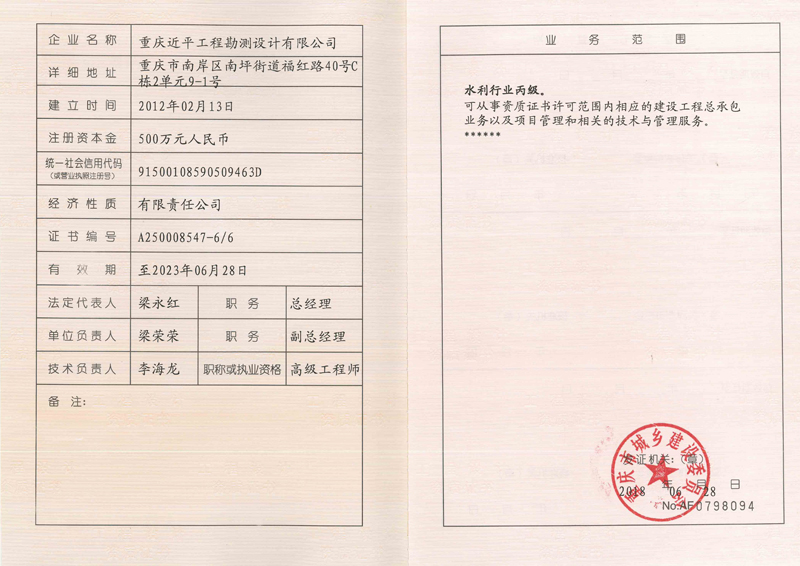 企业名称 重庆近平工程勘测设计有限公司
详细地址 重庆市南岸区南坪街道福红路40号C
栋2单元9-1号
建立时间 2012年02月13日
注册资本金 500万元人民币
统一社会信用代码
(或营业执照注册号) 91500108590509463D
经济性质 有限责任公司
证书编号 A250008547-6/6
有效期 至2023年06月28日
法定代表人 梁永红 职务 总经理
单位负责人 梁荣荣 职务 副总经理
技术负责人 李海龙 职称或执业资格 高级工程师
备注:
业务范围
水利行业丙级。
可从事资质证书许可范围内相应的建设工程总承包
业务以及项目管理和相关的技术与管理服务。
******
重庆市城乡建设委员会
发证机关:(章)
2018年06月28日
No.AF0798094